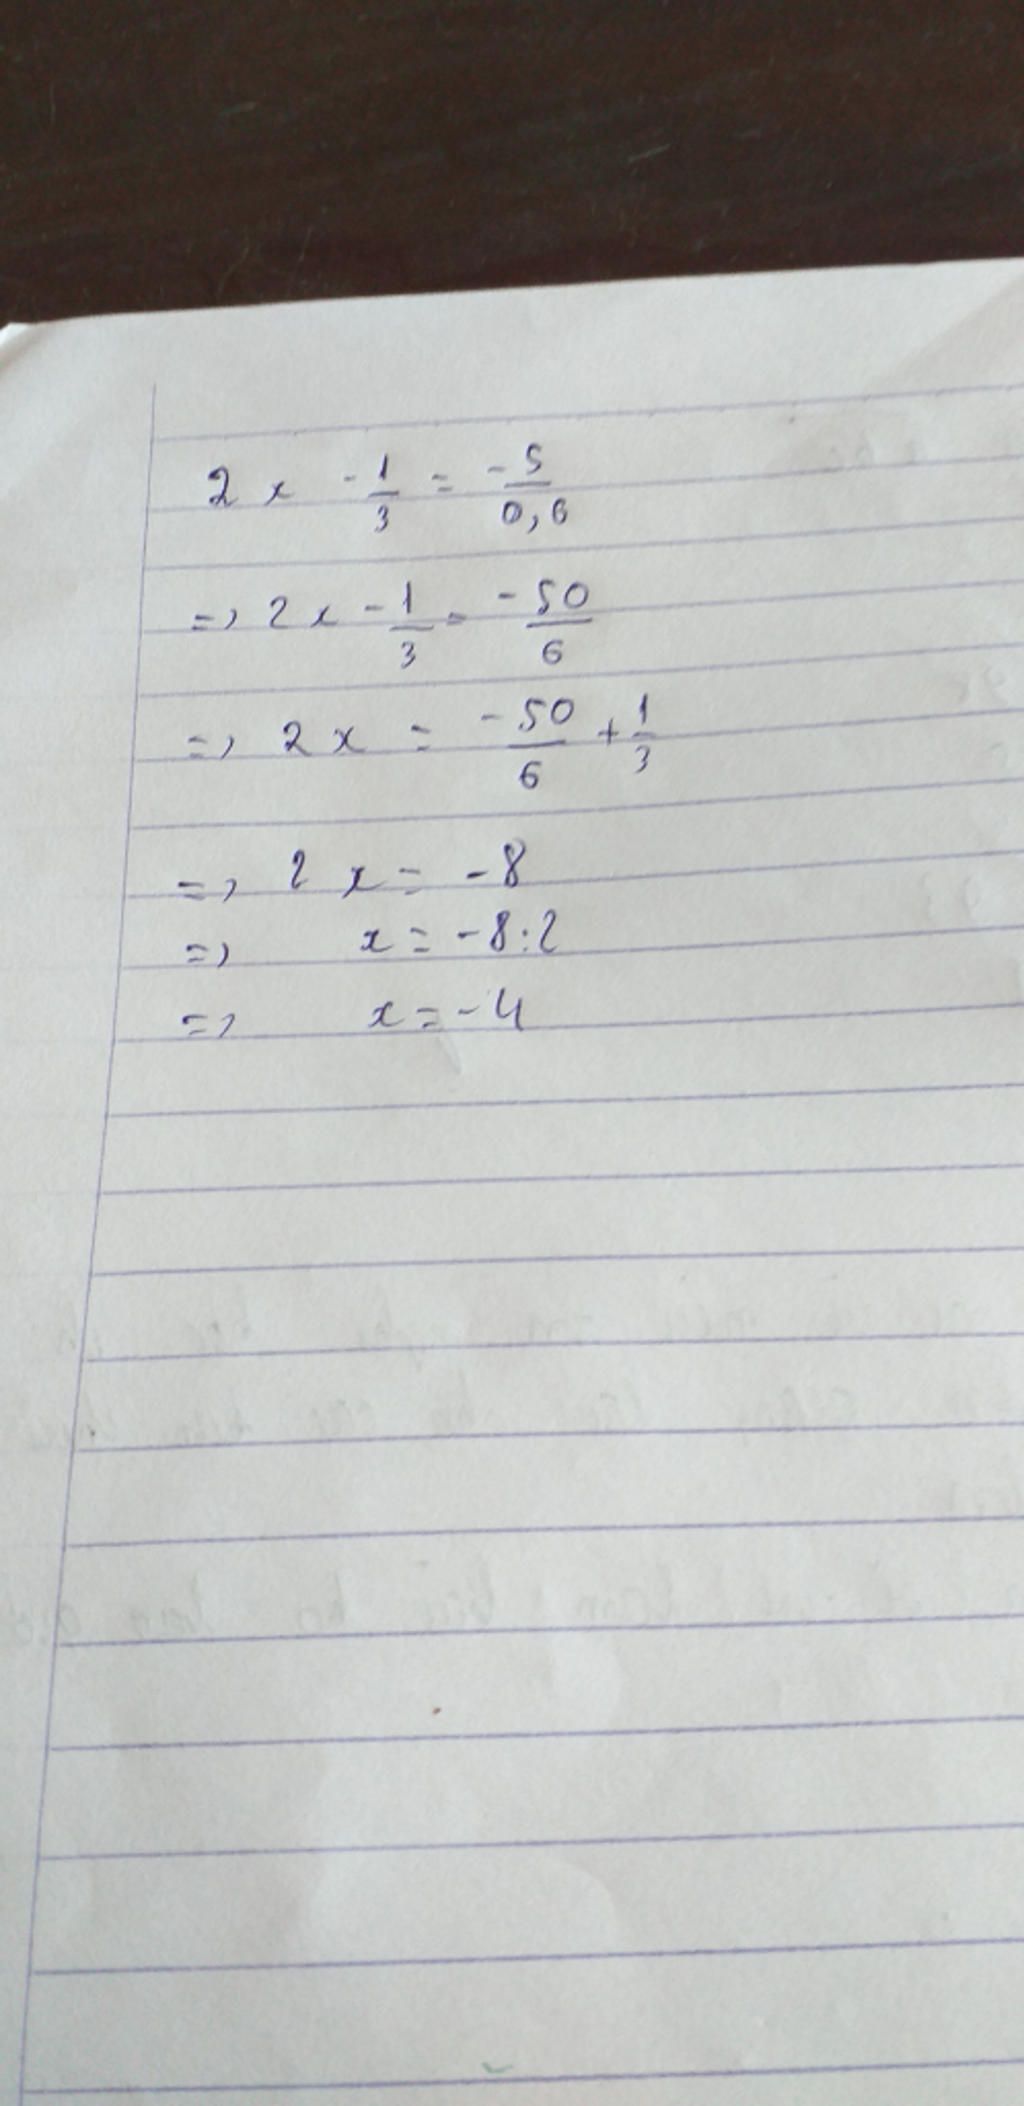 2x - 1/3 = -5/0,6
=> 2x - 1/3 = -50/6
=> 2x = -50/6 + 1/3
=> 2x = -8
=> x = -8:2
=> x = -4